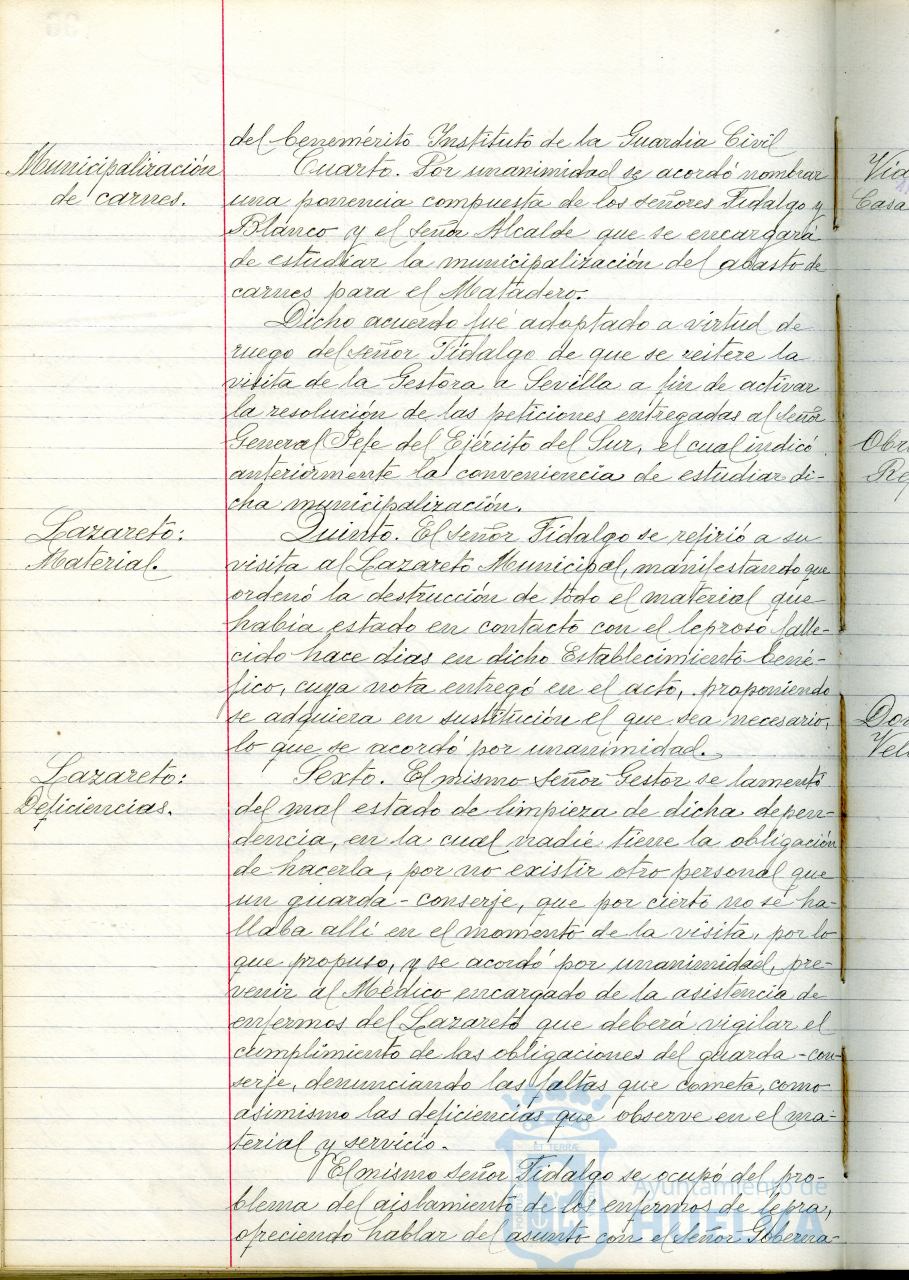 del benemérito Instituto de la Guardia Civil
Municipalización
de carnes.
Cuarto. Por unanimidad se acordó nombrar
una ponencia compuesta de los señores Fidalgo y
Blanco y el señor Alcalde que se encargará
de estudiar la municipalización del abasto de
carnes para el Matadero.
Dicho acuerdo fué adoptado a virtud de
ruego del señor Fidalgo de que se reitere la
visita de la Gestora a Sevilla a fin de activar
la resolución de las peticiones entregadas al Señor
General Jefe del Ejército del Sur, el cual indicó
anteriormente la conveniencia de estudiar di-
cha municipalización.
Lazareto:
Material.
Quinto. El señor Fidalgo se refirió a su
visita al Lazareto Municipal, manifestando que
ordenó la destrucción de todo el material que
habia estado en contacto con el leproso falle-
cido hace dias en dicho Establecimiento bené-
fico, cuya nota entregó en el acto, proponiendo
se adquiera en sustitución el que sea necesario,
lo que se acordó por unanimidad.
Lazareto:
Deficiencias.
Sexto. El mismo señor Gestor se lamentó
del mal estado de limpieza de dicha depen-
dencia, en la cual nadie tiene la obligación
de hacerla, por no existir otro personal que
un guarda-conserje, que por cierto no se ha-
llaba allí en el momento de la visita, por lo
que propuso, y se acordó por unanimidad, pre-
venir al Médico encargado de la asistencia de
enfermos del Lazareto que deberá vigilar el
cumplimiento de las obligaciones del guarda-con-
serje, denunciando las faltas que cometa, como
asimismo las deficiencias que observe en el ma-
terial y servicio.
El mismo señor Fidalgo se ocupó del pro-
blema del aislamiento de los enfermos de lepra,
ofreciendo hablar del asunto con el señor Goberna-
Ayuntamiento de
HUELVA
Via
Casa
Obr
Rep
Do
Vel